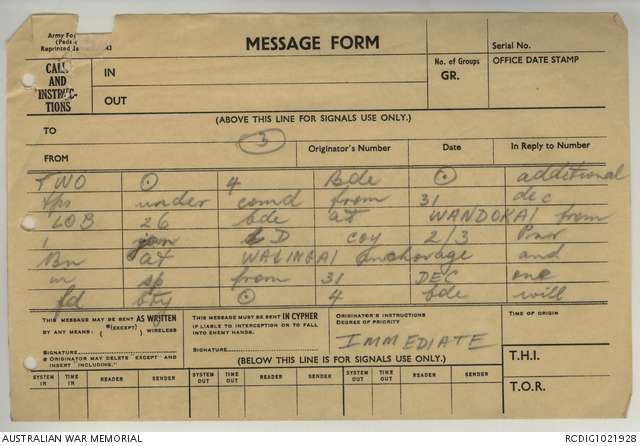 Army Fo
(Pads
Reprinted Ja
MESSAGE FORM
Serial No.
CALL
AND
INSTRUC-
TIONS
IN
OUT
No. of Groups
GR.
OFFICE DATE STAMP
(ABOVE THIS LINE FOR SIGNALS USE ONLY.)
TO
3
FROM Originator's Number Date In Reply to Number
TWO ⊙ 4 Bde ⊙ additional
tps under comd from 31 dec
LOB 26 bde at WANDOKAI from
1 jan D coy 2/3 Pnr
Bn at WALINGAI anchorage and
in sp from 31 DEC one
fd bty ⊙ 4 bde will
THIS MESSAGE MAY BE SENT AS WRITTEN
BY ANY MEANS. (*(EXCEPT) ) WIRELESS
SIGNATURE
ORIGINATOR MAY DELETE "EXCEPT" AND
INSERT "INCLUDING."
THIS MESSAGE MUST BE SENT IN CYPHER
IF LIABLE TO INTERCEPTION OR TO FALL
INTO ENEMY HANDS.
SIGNATURE
ORIGINATOR'S INSTRUCTIONS
DEGREE OF PRIORITY
IMMEDIATE
TIME OF ORIGIN
(BELOW THIS LINE IS FOR SIGNALS USE ONLY.)
T.H.I.
SYSTEM IN TIME IN READER SENDER SYSTEM OUT TIME OUT READER SENDER SYSTEM OUT TIME OUT READER SENDER
T.O.R.
AUSTRALIAN WAR MEMORIAL RCDIG1021928